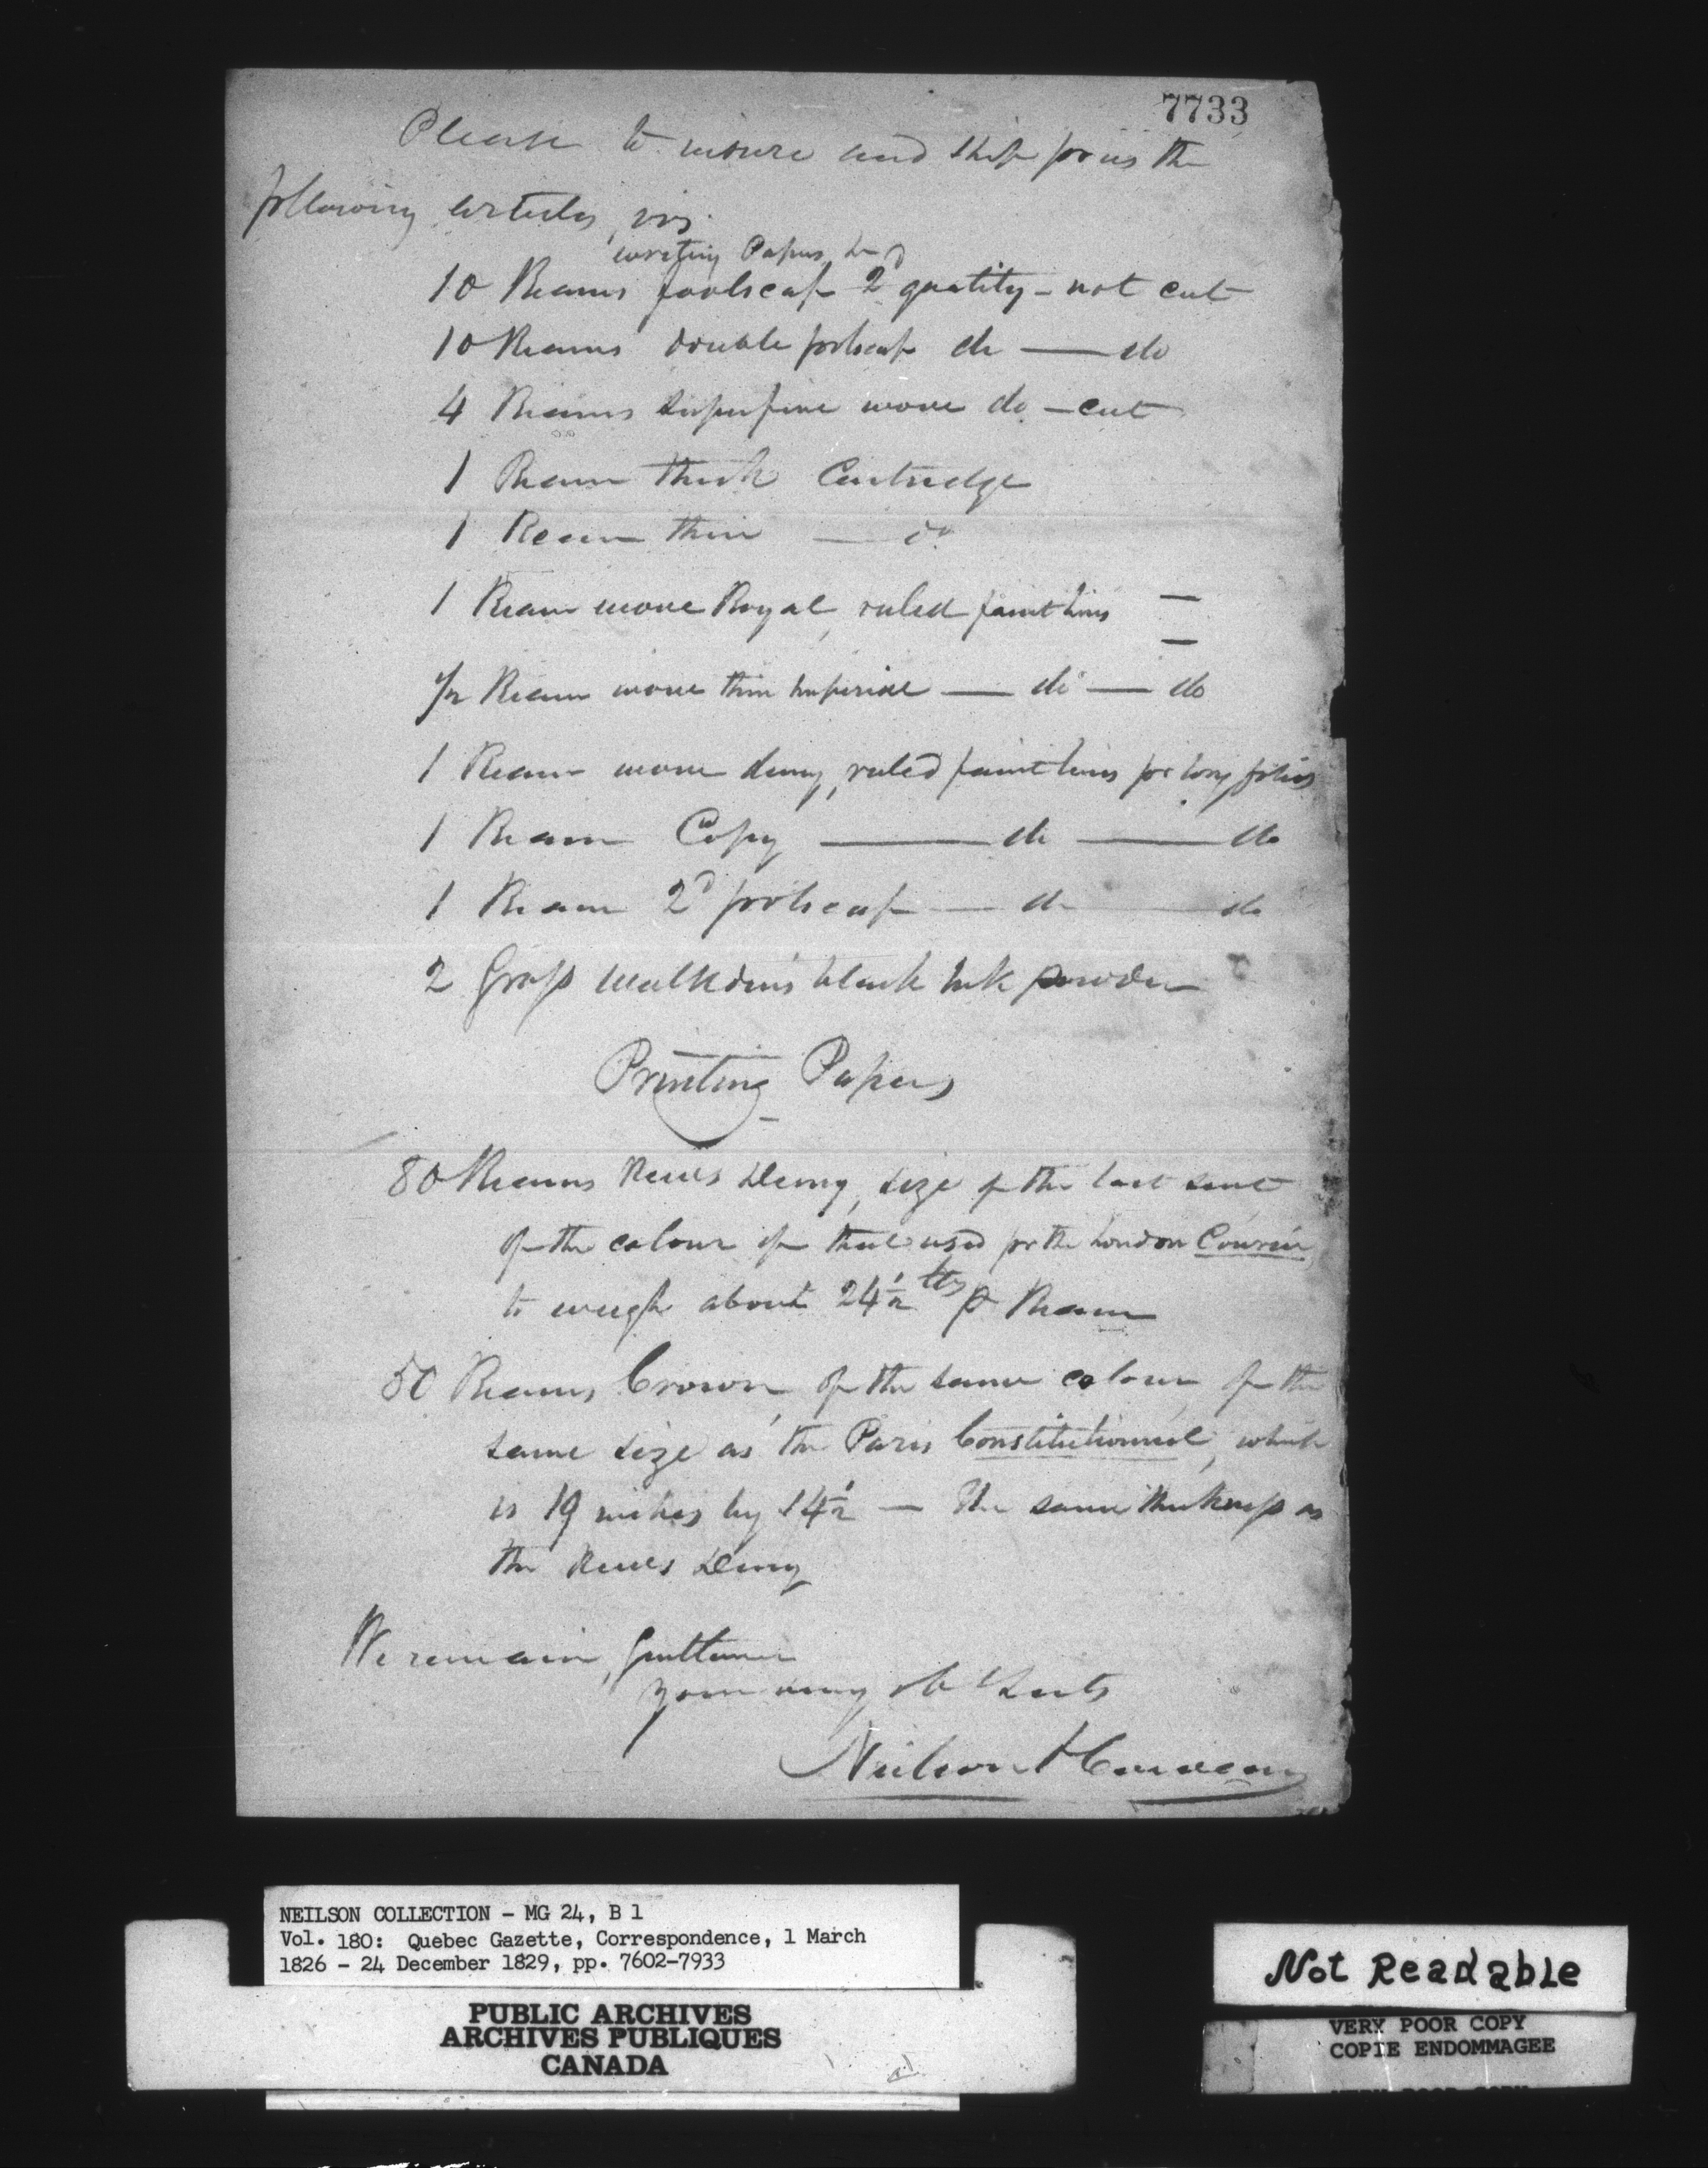 7733
Please to insure and ship for us the
following articles, viz.
writing Papers
10 Reams foolscap 2d quality - not cut
10 Reams double foolscap do — do
4 Reams superfine wove do - cut
1 Ream thick Cartridge
1 Ream thin — do
1 Ream wove Royal, ruled faint lines —
—
1/2 Ream wove thin Imperial — do — do
1 Ream wove demy, ruled faint lines for long folios
1 Ream Copy — do — do
1 Ream 2d foolscap — do — do
2 Gross Walkdens black Ink powder
Printing Papers
80 Reams News Demy, size of the last sent
of the colour of that used for the London Courier
to weigh about 24 1/2 lbs p Ream
50 Reams, Crown, of the same colour, of the
same size as the Paris Constitutionnel, which
is 19 inches by 14 1/2 — the same thickness as
the News Demy
We remain, Gentlemen
your very ob Servts
Neilson & Cowan
NEILSON COLLECTION - MG 24, B 1
Vol. 180: Quebec Gazette, Correspondence, 1 March
1826 - 24 December 1829, pp. 7602-7933
PUBLIC ARCHIVES
ARCHIVES PUBLIQUES
CANADA
Not Readable
VERY POOR COPY
COPIE ENDOMMAGEE